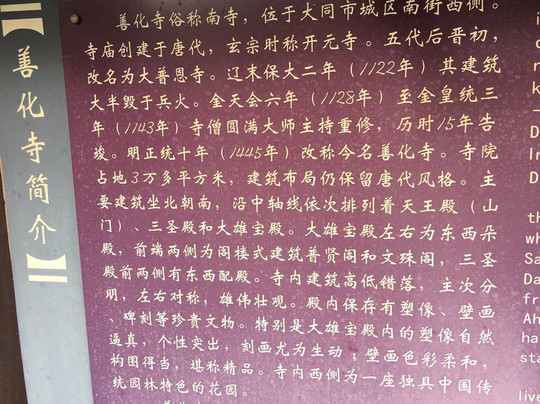 【善化寺简介】
善化寺俗称南寺，位于大同市城区南街西侧。
寺庙创建于唐代，玄宗时称开元寺。五代后晋初，
改名为大普恩寺。辽末保大二年（1122年）其建筑
大半毁于兵火。金天会六年（1128年）至金皇统三
年（1143年）寺僧圆满大师主持重修，历时15年告
竣。明正统十年（1445年）改称今名善化寺。寺院
占地3万多平方米，建筑布局仍保留唐代风格。主
要建筑坐北朝南，沿中轴线依次排列着天王殿（山
门）、三圣殿和大雄宝殿。大雄宝殿左右为东西朵
殿，前端两侧为阁楼式建筑普贤阁和文殊阁，三圣
殿前两侧有东西配殿。寺内建筑高低错落，主次分
明，左右对称，雄伟壮观。殿内保存有塑像、壁画
、碑刻等珍贵文物。特别是大雄宝殿内的塑像自然
逼真，个性突出，刻画尤为生动；壁画色彩柔和，
构图得当，堪称精品。寺内西侧为一座独具中国传
统园林特色的花园。